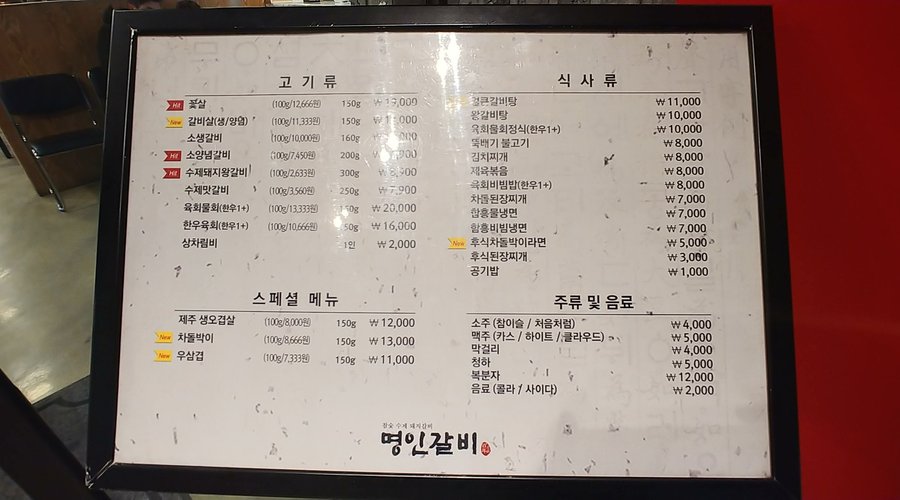 고기류
Hit 꽃살 (100g/12,666원) 150g ₩ 19,000
New 갈비살(생/양념) (100g/11,333원) 150g
소생갈비 (100g/10,000원) 160g
Hit 소양념갈비 (100g/7,450원) 200g
Hit 수제돼지왕갈비 (100g/2,633원) 300g
수제맛갈비 (100g/3,560원) 250g
육회물회(한우1+) (100g/13,333원) 150g ₩ 20,000
한우육회(한우1+) (100g/10,666원) 150g ₩ 16,000
상차림비 1인 ₩ 2,000
스페셜 메뉴
제주 생오겹살 (100g/8,000원) 150g ₩ 12,000
New 차돌박이 (100g/8,666원) 150g ₩ 13,000
New 우삼겹 (100g/7,333원) 150g ₩ 11,000
식사류
얼큰갈비탕 ₩ 11,000
왕갈비탕 ₩ 10,000
육회물회정식(한우1+) ₩ 10,000
뚝배기 불고기 ₩ 8,000
김치찌개 ₩ 8,000
제육볶음 ₩ 8,000
육회비빔밥(한우1+) ₩ 8,000
차돌된장찌개 ₩ 7,000
함흥물냉면 ₩ 7,000
함흥비빔냉면 ₩ 7,000
New 후식차돌박이라면 ₩ 5,000
후식된장찌개 ₩ 3,000
공기밥 ₩ 1,000
주류 및 음료
소주 (참이슬 / 처음처럼) ₩ 4,000
맥주 (카스 / 하이트 / 클라우드) ₩ 5,000
막걸리 ₩ 4,000
청하 ₩ 5,000
복분자 ₩ 12,000
음료 (콜라 / 사이다) ₩ 2,000
참숯 수제 돼지갈비
명인갈비